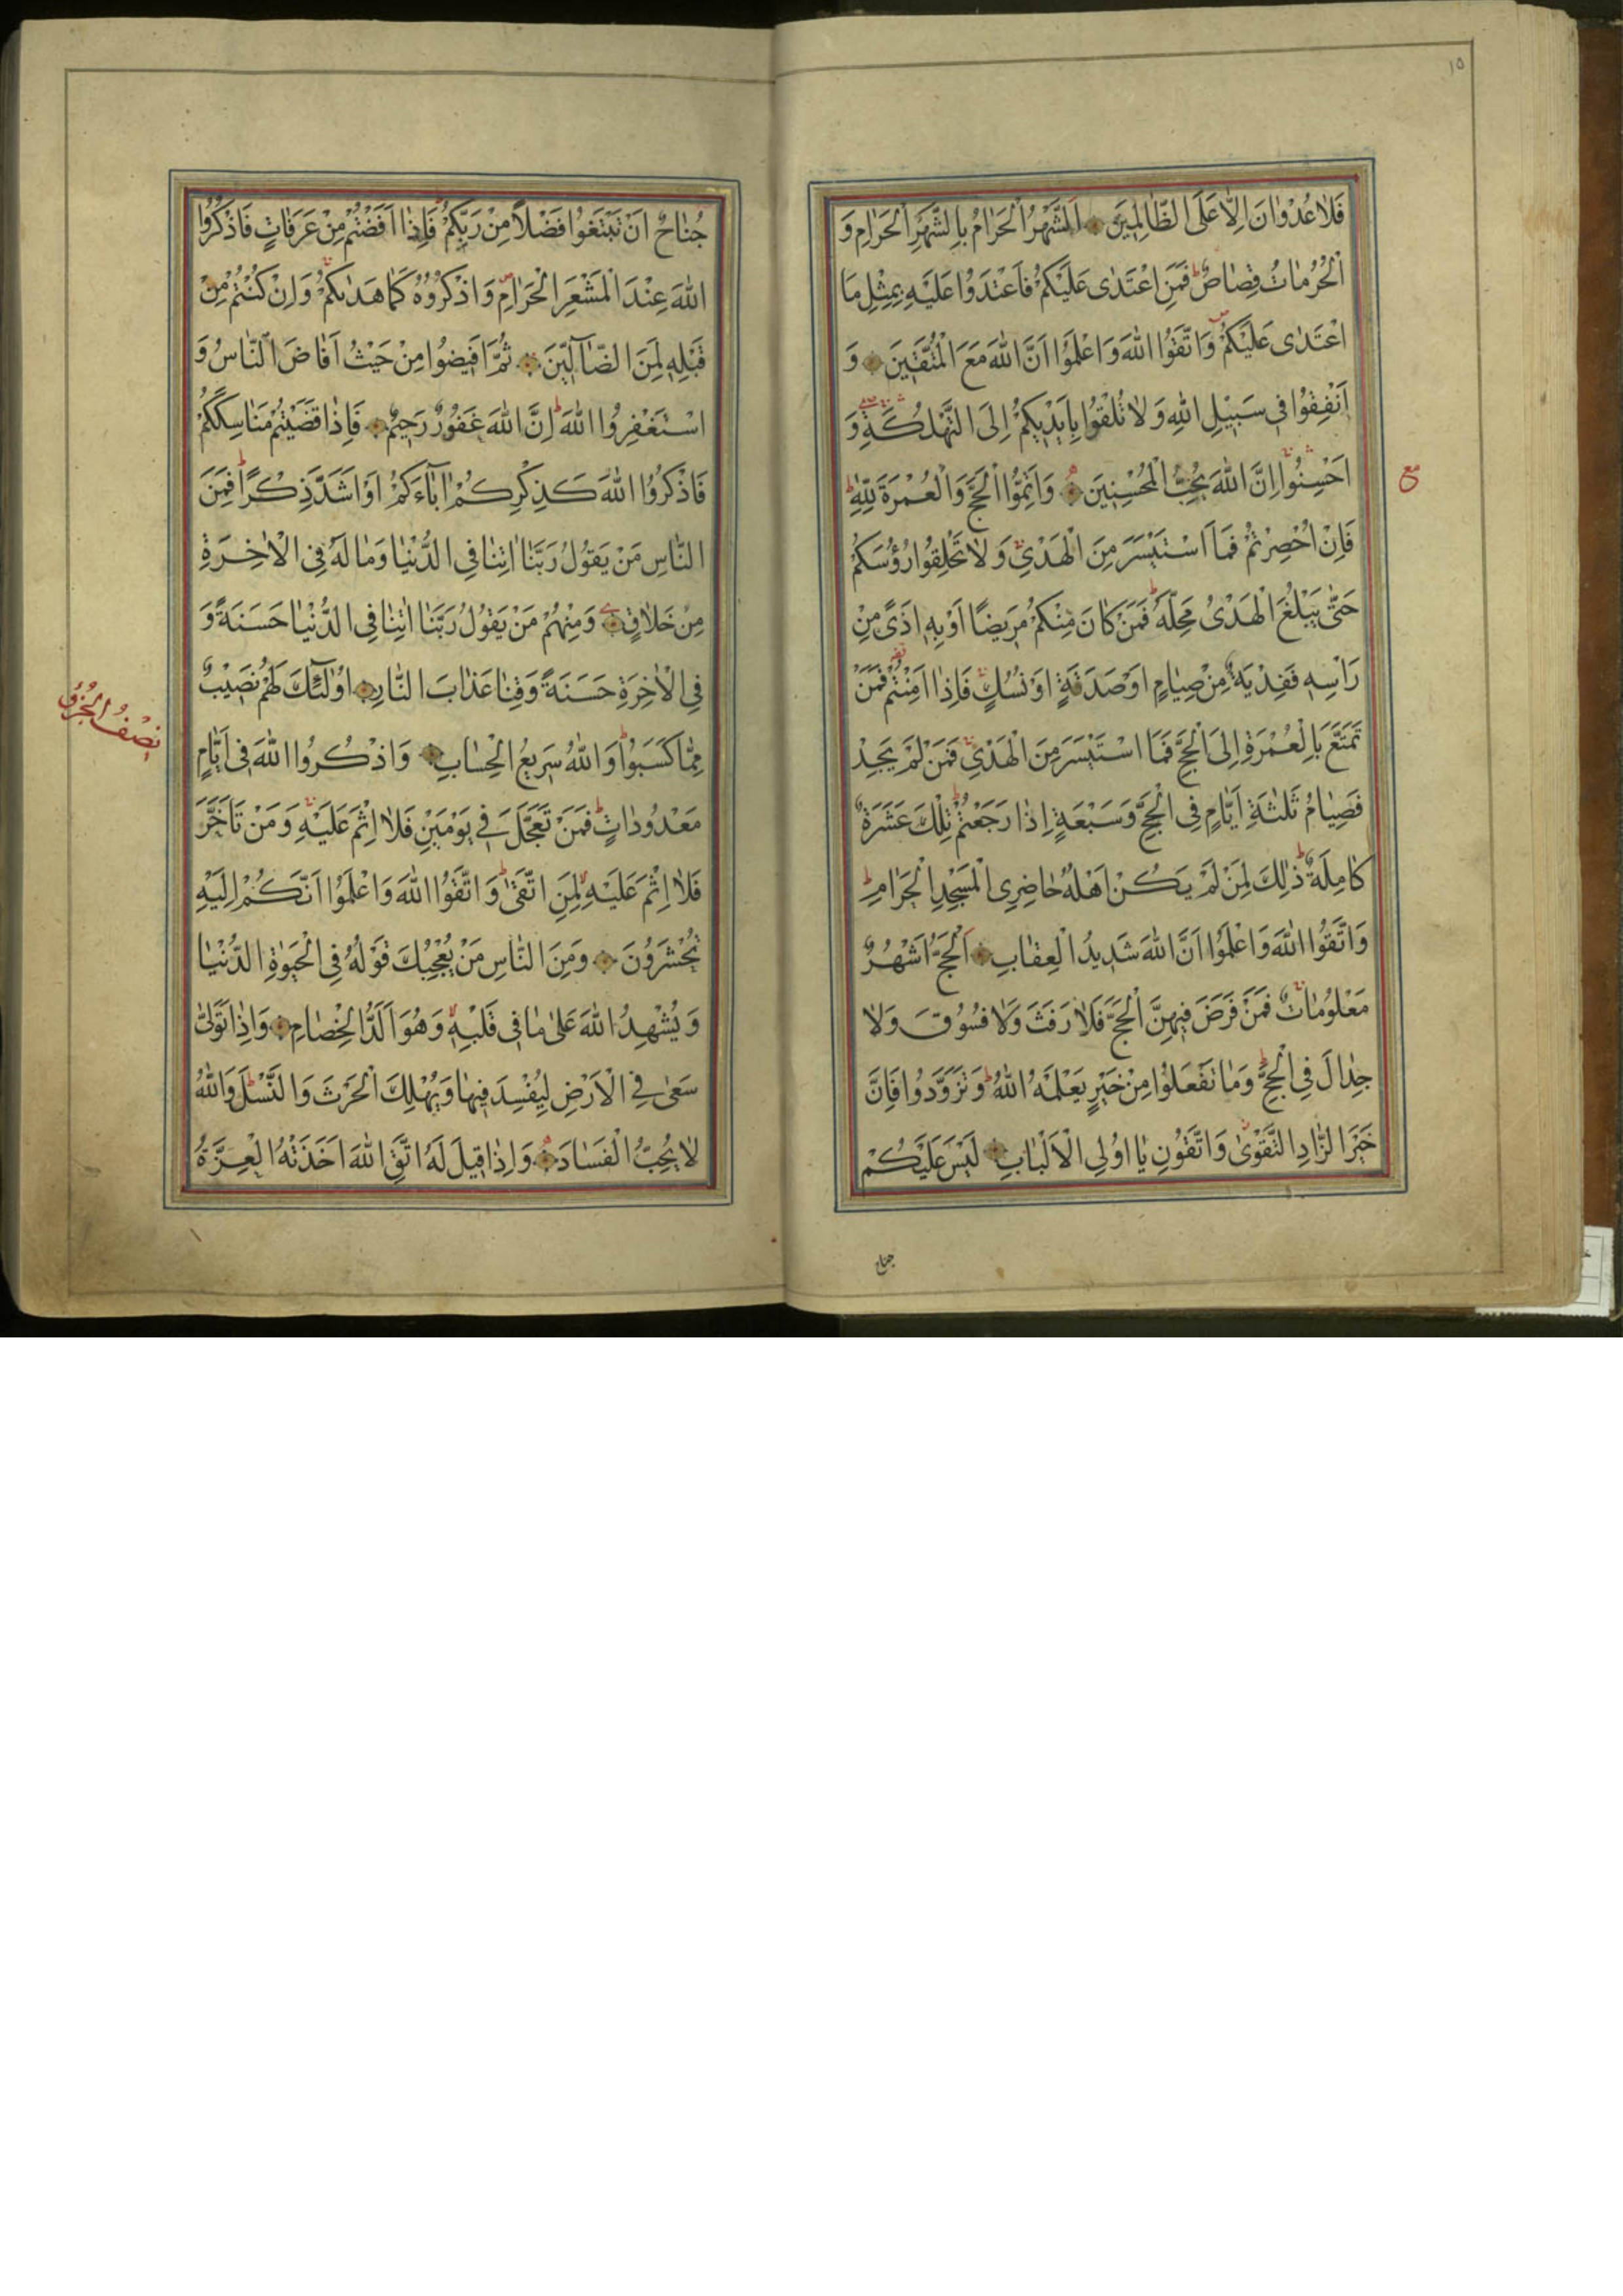 ١٥
فَلَا عُدْوَانَ اِلَّا عَلَى الظَّالِمِينَ اَلشَّهْرُ الْحَرَامُ بِالشَّهْرِ الْحَرَامِ وَ
الْحُرُمَاتُ قِصَاصٌ ط فَمَنِ اعْتَدٰى عَلَيْكُمْ فَاعْتَدُوا عَلَيْهِ بِمِثْلِ مَا
اعْتَدٰى عَلَيْكُمْ ص وَاتَّقُوا اللّٰهَ وَاعْلَمُوا اَنَّ اللّٰهَ مَعَ الْمُتَّقِينَ وَ
اَنْفِقُوا فِي سَبِيلِ اللّٰهِ وَلَا تُلْقُوا بِاَيْدِيكُمْ اِلَى التَّهْلُكَةِ وَ
اَحْسِنُوا اِنَّ اللّٰهَ يُحِبُّ الْمُحْسِنِينَ وَاَتِمُّوا الْحَجَّ وَالْعُمْرَةَ لِلّٰهِ ط
مع
فَاِنْ اُحْصِرْتُمْ فَمَا اسْتَيْسَرَ مِنَ الْهَدْيِ وَلَا تَحْلِقُوا رُؤُسَكُمْ
حَتّٰى يَبْلُغَ الْهَدْىُ مَحِلَّهُ ط فَمَنْ كَانَ مِنْكُمْ مَرِيضًا اَوْ بِهِ اَذًى مِنْ
رَاْسِهِ فَفِدْيَةٌ مِنْ صِيَامٍ اَوْ صَدَقَةٍ اَوْ نُسُكٍ فَاِذَا اَمِنْتُمْ فَمَنْ
تَمَتَّعَ بِالْعُمْرَةِ اِلَى الْحَجِّ فَمَا اسْتَيْسَرَ مِنَ الْهَدْيِ فَمَنْ لَمْ يَجِدْ
فَصِيَامُ ثَلٰثَةِ اَيَّامٍ فِي الْحَجِّ وَسَبْعَةٍ اِذَا رَجَعْتُمْ ط تِلْكَ عَشَرَةٌ
كَامِلَةٌ ط ذٰلِكَ لِمَنْ لَمْ يَكُنْ اَهْلُهُ حَاضِرِى الْمَسْجِدِ الْحَرَامِ ط
وَاتَّقُوا اللّٰهَ وَاعْلَمُوا اَنَّ اللّٰهَ شَدِيدُ الْعِقَابِ اَلْحَجُّ اَشْهُرٌ
مَعْلُومَاتٌ فَمَنْ فَرَضَ فِيهِنَّ الْحَجَّ فَلَا رَفَثَ وَلَا فُسُوقَ وَلَا
جِدَالَ فِي الْحَجِّ ط وَمَا تَفْعَلُوا مِنْ خَيْرٍ يَعْلَمْهُ اللّٰهُ ط وَتَزَوَّدُوا فَاِنَّ
خَيْرَ الزَّادِ التَّقْوٰى وَاتَّقُونِ يَا اُولِي الْاَلْبَابِ لَيْسَ عَلَيْكُمْ
جناح
جُنَاحٌ اَنْ تَبْتَغُوا فَضْلًا مِنْ رَبِّكُمْ فَاِذَا اَفَضْتُمْ مِنْ عَرَفَاتٍ فَاذْكُرُوا
اللّٰهَ عِنْدَ الْمَشْعَرِ الْحَرَامِ ص وَاذْكُرُوهُ كَمَا هَدٰيكُمْ وَاِنْ كُنْتُمْ مِنْ
قَبْلِهِ لَمِنَ الضَّآلِّينَ ثُمَّ اَفِيضُوا مِنْ حَيْثُ اَفَاضَ النَّاسُ وَ
اسْتَغْفِرُوا اللّٰهَ ط اِنَّ اللّٰهَ غَفُورٌ رَحِيمٌ فَاِذَا قَضَيْتُمْ مَنَاسِكَكُمْ
فَاذْكُرُوا اللّٰهَ كَذِكْرِكُمْ اٰبَآءَكُمْ اَوْ اَشَدَّ ذِكْرًا ط فَمِنَ
النَّاسِ مَنْ يَقُولُ رَبَّنَا اٰتِنَا فِي الدُّنْيَا وَمَا لَهُ فِي الْاٰخِرَةِ
مِنْ خَلَاقٍ وَمِنْهُمْ مَنْ يَقُولُ رَبَّنَا اٰتِنَا فِي الدُّنْيَا حَسَنَةً وَ
فِي الْاٰخِرَةِ حَسَنَةً وَقِنَا عَذَابَ النَّارِ اُولٰٓئِكَ لَهُمْ نَصِيبٌ
نِصْفُ الْجُزْءِ
مِمَّا كَسَبُوا ط وَاللّٰهُ سَرِيعُ الْحِسَابِ وَاذْكُرُوا اللّٰهَ فِي اَيَّامٍ
مَعْدُودَاتٍ ط فَمَنْ تَعَجَّلَ فِي يَوْمَيْنِ فَلَا اِثْمَ عَلَيْهِ وَمَنْ تَاَخَّرَ
فَلَا اِثْمَ عَلَيْهِ لِمَنِ اتَّقٰى ط وَاتَّقُوا اللّٰهَ وَاعْلَمُوا اَنَّكُمْ اِلَيْهِ
تُحْشَرُونَ وَمِنَ النَّاسِ مَنْ يُعْجِبُكَ قَوْلُهُ فِي الْحَيٰوةِ الدُّنْيَا
وَيُشْهِدُ اللّٰهَ عَلٰى مَا فِي قَلْبِهِ وَهُوَ اَلَدُّ الْخِصَامِ وَاِذَا تَوَلّٰى
سَعٰى فِي الْاَرْضِ لِيُفْسِدَ فِيهَا وَيُهْلِكَ الْحَرْثَ وَالنَّسْلَ ط وَاللّٰهُ
لَا يُحِبُّ الْفَسَادَ وَاِذَا قِيلَ لَهُ اتَّقِ اللّٰهَ اَخَذَتْهُ الْعِزَّةُ